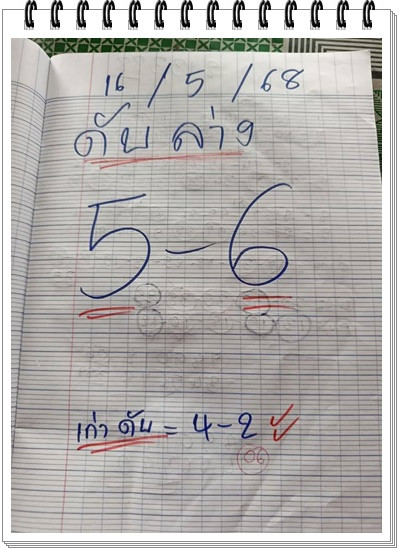 16 / 5 / 68
ดับ ล่าง
5 - 6
เก่า ดับ = 4 - 2
06